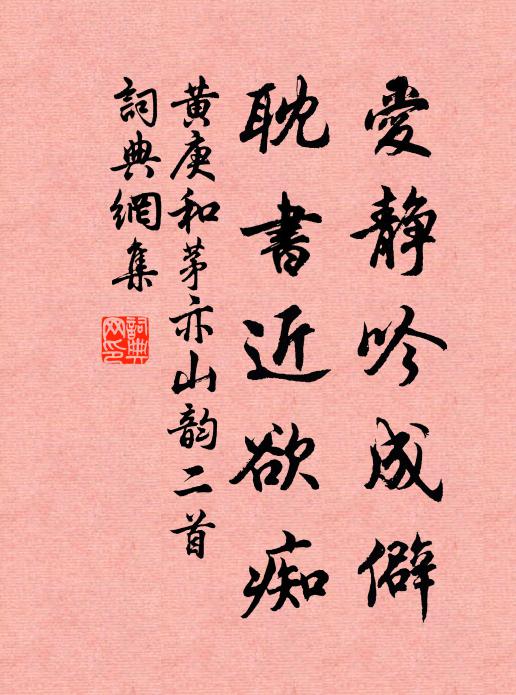 愛靜吟成僻
耽書近欲痴
黃庚和茅亦山韵二首
詞典網集
詞典网印